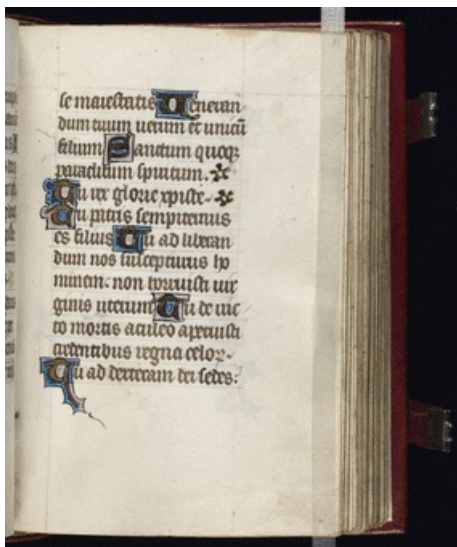 se maiestatis Veneran
dum tuum uerum et unicū
filium Sanctum quoqꝫ
paraclitum spiritum.
Tu rex glorie xpiste
Tu patris sempiternus
es filius Tu ad liberan
dum nos suscepturus ho
minem. non horruisti uir
ginis uterum Tu de uic
to mortis aculeo aperuisti
credentibus regna celoꝝ.
Tu ad dexteram dei sedes: